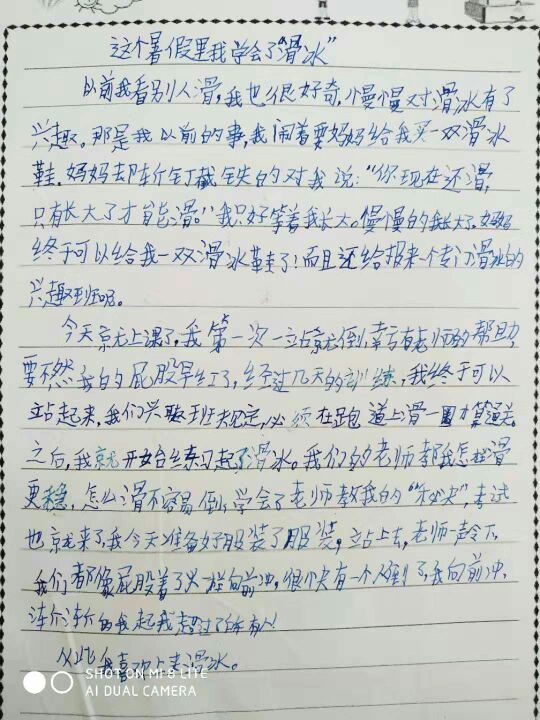 这个暑假里我学会了“滑冰”
以前我看别人滑,我也很好奇,慢慢对滑冰有了
兴趣。那是我以前的事,我闹着要妈妈给我买一双滑冰
鞋。妈妈却斩钉截铁的对我说:“你现在还滑,
只有长大了才能滑。”我只好等着我长大。慢慢的我长大了,妈妈
终于可以给我一双滑冰鞋了!而且还给报来一个专门滑冰的
兴趣班呢。
今天就上课了,我第一次一站就倒,幸亏有老师的帮助,
要不然我的屁股早红了,经过几天的训练,我终于可以
站起来,我们兴趣班规定,必须在跑道上滑一圈才算通关。
之后,我就开始练习起了滑冰。我们的老师教我怎么滑
更稳,怎么滑不容易倒,学会了老师教我的“秘诀”,考试
也就来了,我今天准备好服装了服装,站上去,老师一声令下,
我们都像屁股着了火一样向前冲,很少有一个人倒了,我向前冲,
渐渐的我起我超过了所有人!
从此我喜欢上来滑冰。
SHOT ON MI 8 LITE
AI DUAL CAMERA